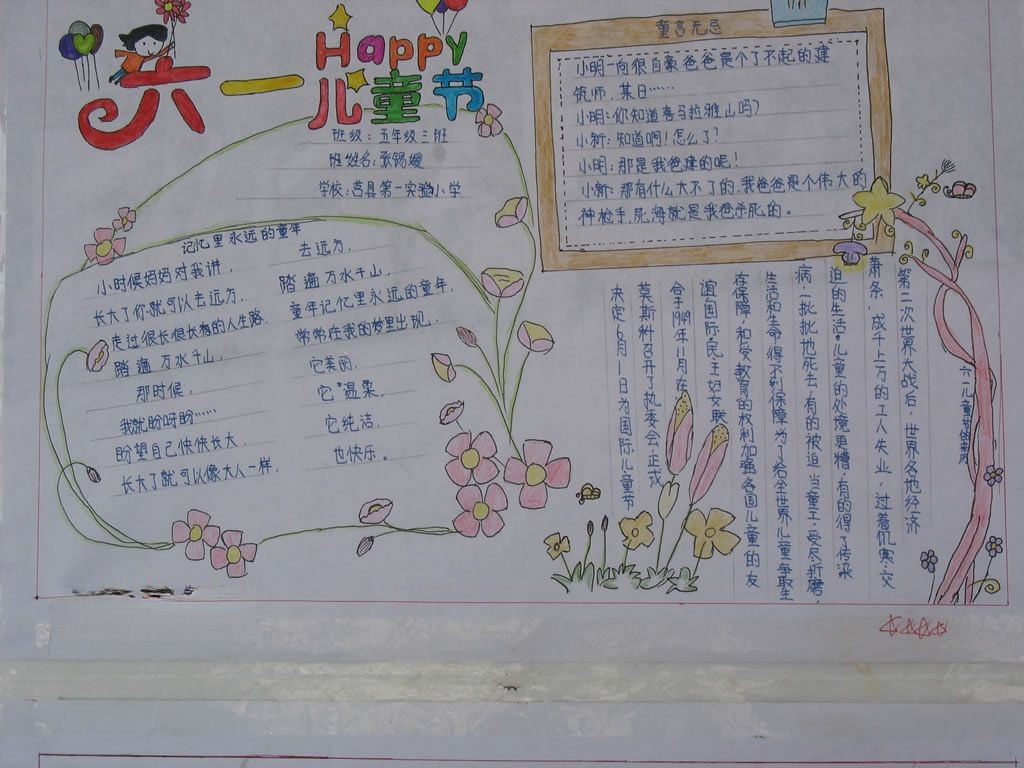 六一
Happy
儿童节
班级：五年级三班
班姓名：张锡媛
学校：莒县第一实验小学
童言无忌
小明一向很自豪爸爸是个了不起的建
筑师，某日……
小明：你知道喜马拉雅山吗？
小新：知道啊！怎么了？
小明：那是我爸建的呢！
小新：那有什么大不了的，我爸爸是个伟大的
神枪手，死海就是我爸杀死的。
记忆里永远的童年
小时候妈妈对我讲，
长大了你就可以去远方，
走过很长很长的人生路，
踏遍万水千山，
那时候，
我就盼呀盼……
盼望自己快快长大，
长大了就可以像大人一样，
去远方，
踏遍万水千山，
童年记忆里永远的童年，
常常在我的梦里出现，
它美丽，
它温柔，
它纯洁，
也快乐。
六一儿童节的来历
第二次世界大战后，世界各地经济
萧条，成千上万的工人失业，过着饥寒交
迫的生活。儿童的处境更糟，有的得了传染
病，一批批地死去，有的被迫当童工，受尽折磨，
生活和生命得不到保障，为了给全世界儿童争取生
存保障和受教育的权利加强各国儿童的友
谊，国际民主妇女联
合于1949年11月在
莫斯科召开了执委会，正式
决定6月1日为国际儿童节